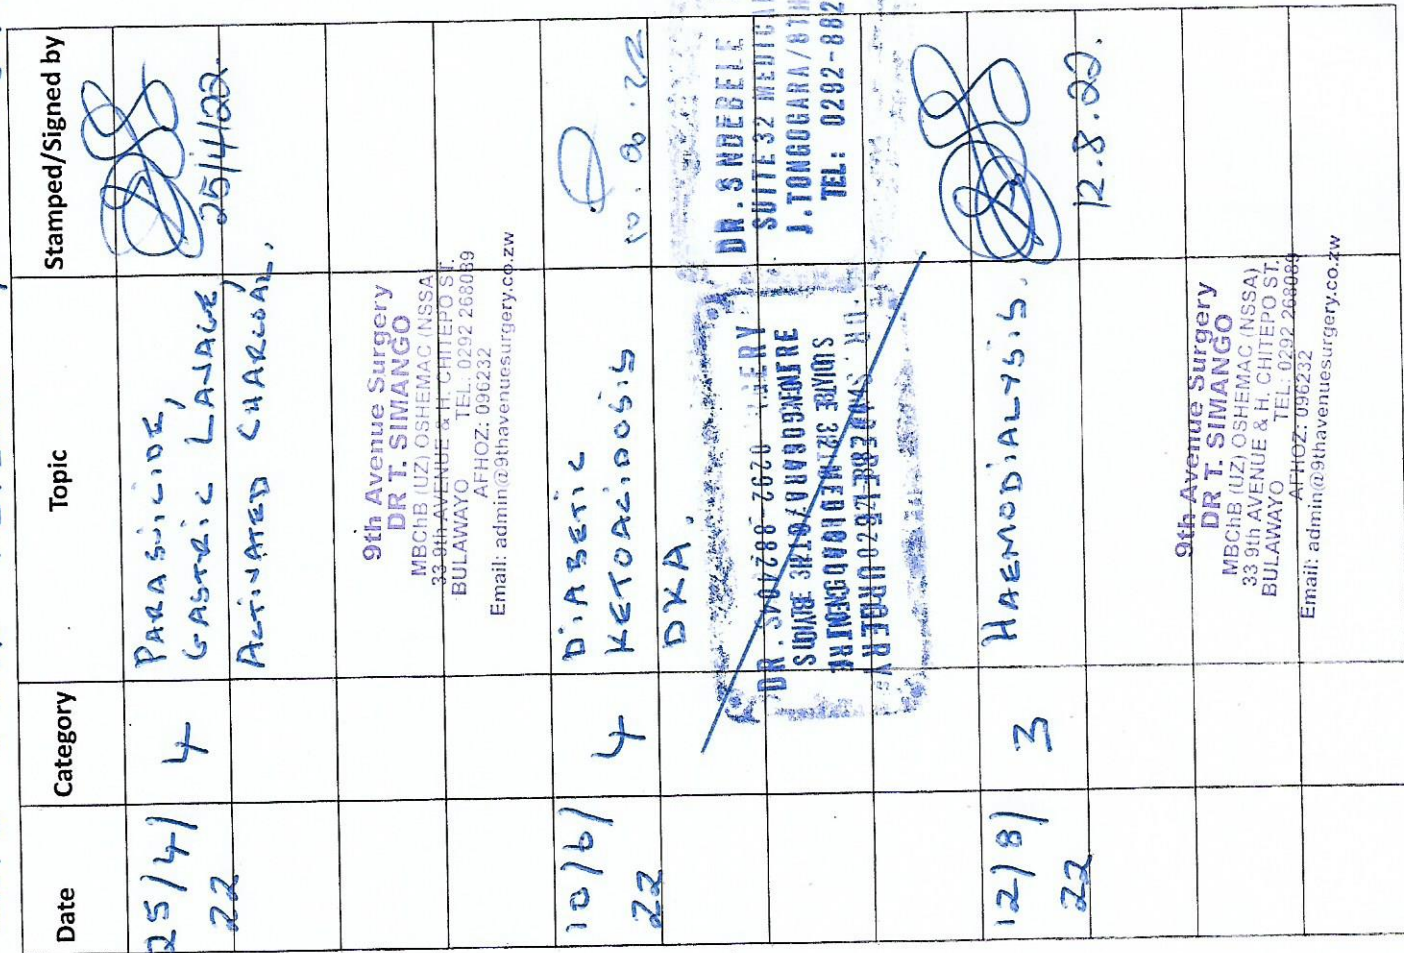 Date Category Topic Stamped/Signed by
25/4/ 4 PARASUICIDE,
22 GASTRIC LAVAGE,
ACTIVATED CHARCOAL.
25/4/22
9th Avenue Surgery
DR T. SIMANGO
MBChB (UZ) OSHEMAC (NSSA)
33 9th AVENUE & H. CHITEPO ST.
BULAWAYO TEL: 0292 268089
AFHOZ: 096232
Email: admin@9thavenuesurgery.co.zw
10/6/ 4 DIABETIC
22 KETOACIDOSIS
DKA.
DR. S NDEBELE
SUITE 32 MEDICA
J. TONGOGARA/8TH
TEL: 0292-882
12/8/ 3 HAEMODIALYSIS.
22
12.8.22.
9th Avenue Surgery
DR T. SIMANGO
MBChB (UZ) OSHEMAC (NSSA)
33 9th AVENUE & H. CHITEPO ST.
BULAWAYO TEL: 0292 268089
AFHOZ: 096232
Email: admin@9thavenuesurgery.co.zw